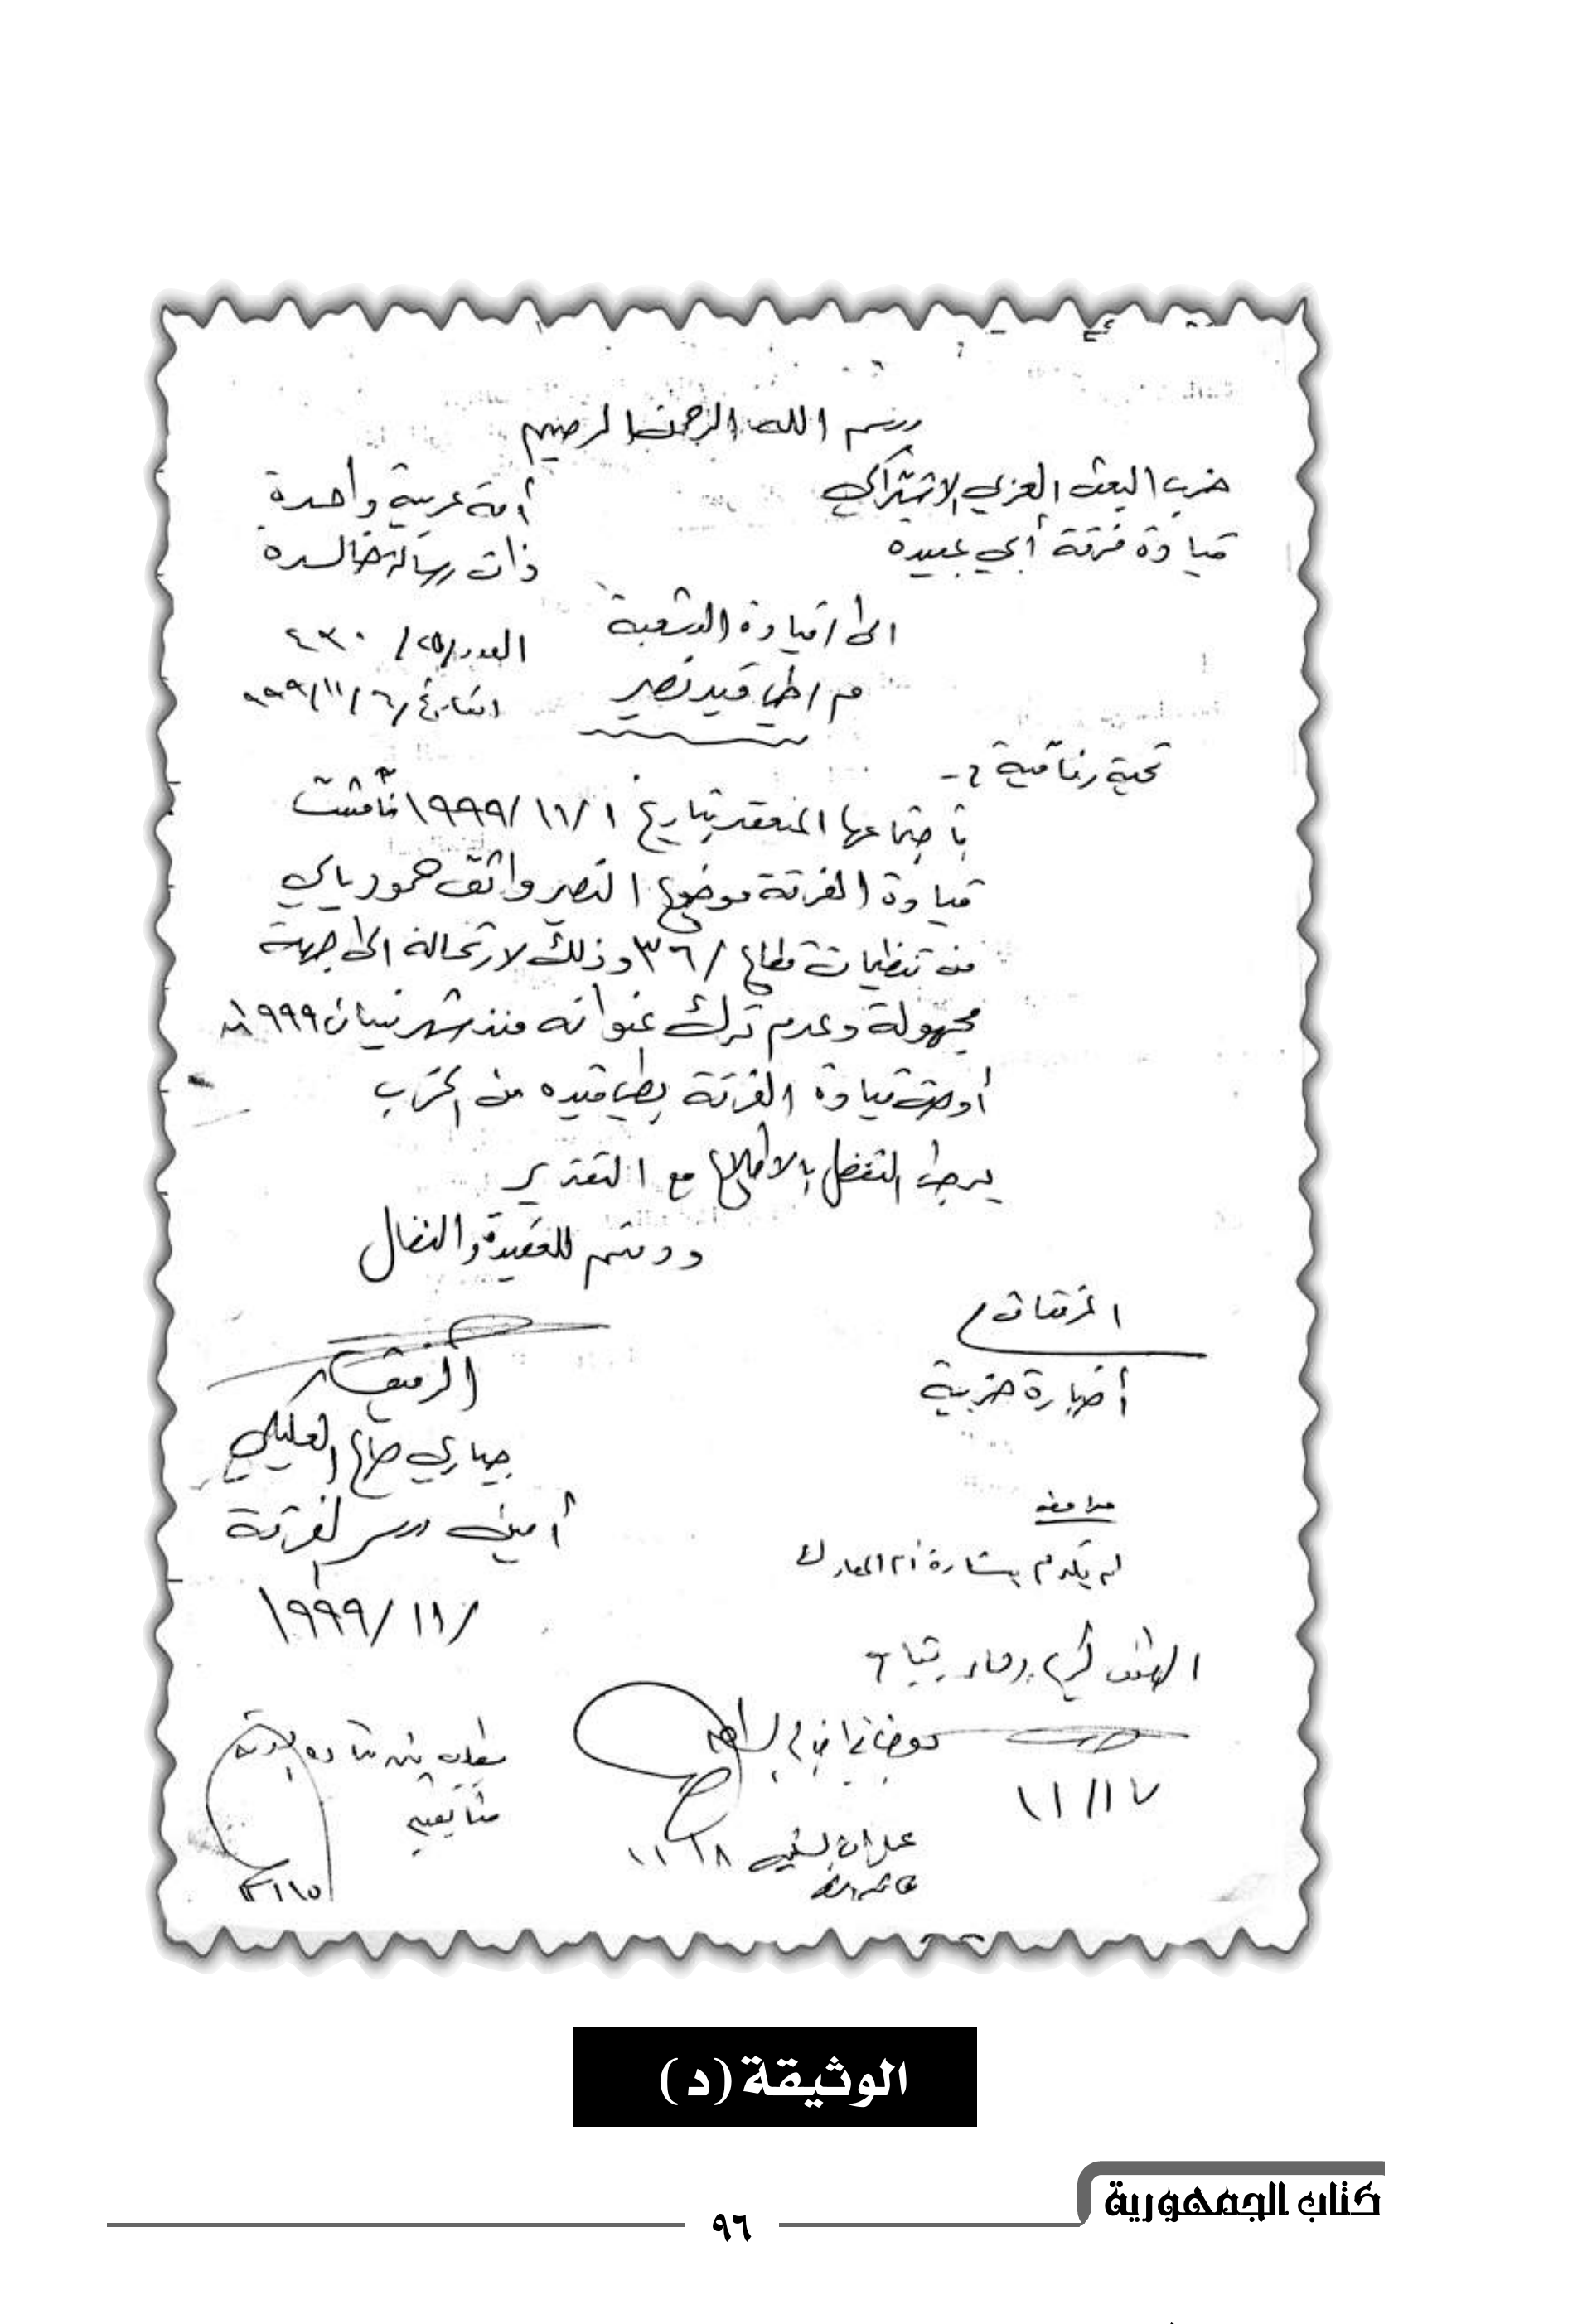 بسم الله الرحمن الرحيم
حزب البعث العربي الاشتراكي
أمة عربية واحدة
قيادة فرقة أبي عبيده
ذات رسالة خالدة
الى / قيادة الشعبة
العدد / ٢٥ / ٤٣٠
م / طي قيد نصير
التاريخ / ٦ / ١١ / ٩٩٩
تحية رفاقية :-
باجتماعها المنعقد بتاريخ ١ / ١١ / ١٩٩٩ ناقشت
قيادة الفرقة موضوع النصير واثق حمود
من تنظيمات قطاع / ٣٦ وذلك لارتحاله الى جهة
مجهولة وعدم ترك عنوانه منذ شهر نيسان ١٩٩٩
أوصت قيادة الفرقة بطي قيده من الحزب
يرجى التفضل بالاطلاع مع التقدير
ودمتم للعقيدة والنضال
المرفقات /
أضبارة حزبية
الرفيق
صالح
أمين سر الفرقة
/ ١١ / ١٩٩٩
لم يكرم بشارة أم المعارك
١٧ / ١١
الوثيقة (د)
كتاب الجمهورية
٩٦